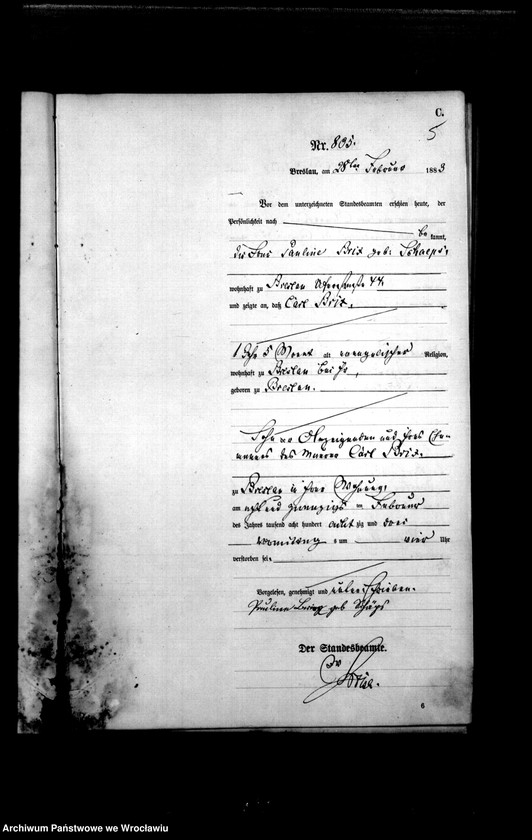 C.
5
Nr. 805.
Breslau, am 28ten Februar 1883
Vor dem unterzeichneten Standesbeamten erschien heute, der
Persönlichkeit nach
be kannt,
die Frau Pauline Brix geb. Schaeps,
wohnhaft zu Breslau 44
und zeigte an, daß Carl Brix,
1 Jahr 5 Monat alt evangelischer Religion,
wohnhaft zu Breslau bei ihr,
geboren zu Breslau.
Sohn der Anzeigenden und ihres Ehe-
mannes des Maurer Carl Brix.
zu Breslau in ihrer Wohnung,
am acht und zwanzigsten Februar
des Jahres tausend acht hundert achtzig und drei
Vormittag s um vier Uhr
verstorben sei.
Vorgelesen, genehmigt und unterschrieben.
Pauline geb Schäps
Der Standesbeamte.
6
Archiwum Państwowe we Wrocławiu